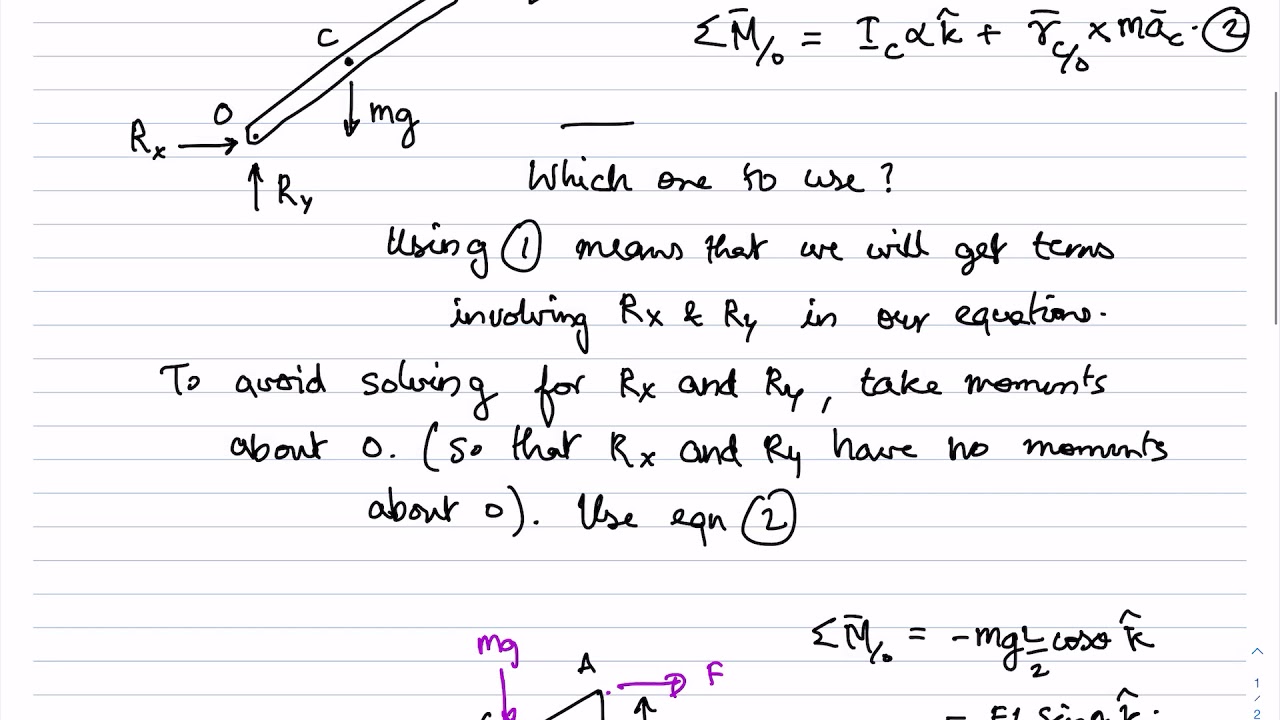 C
ΣM̄/₀ = I_c α k̂ + r̄_c/₀ × m ā_c · ②
O
mg
R_x
R_y
Which one to use?
Using ① means that we will get terms
involving Rx & Ry in our equations.
To avoid solving for Rx and Ry, take moments
about O. (so that Rx and Ry have no moments
about O). Use eqn ②
mg
A
F
ΣM̄/₀ = -mg L/2 cosθ k̂
1
/
2